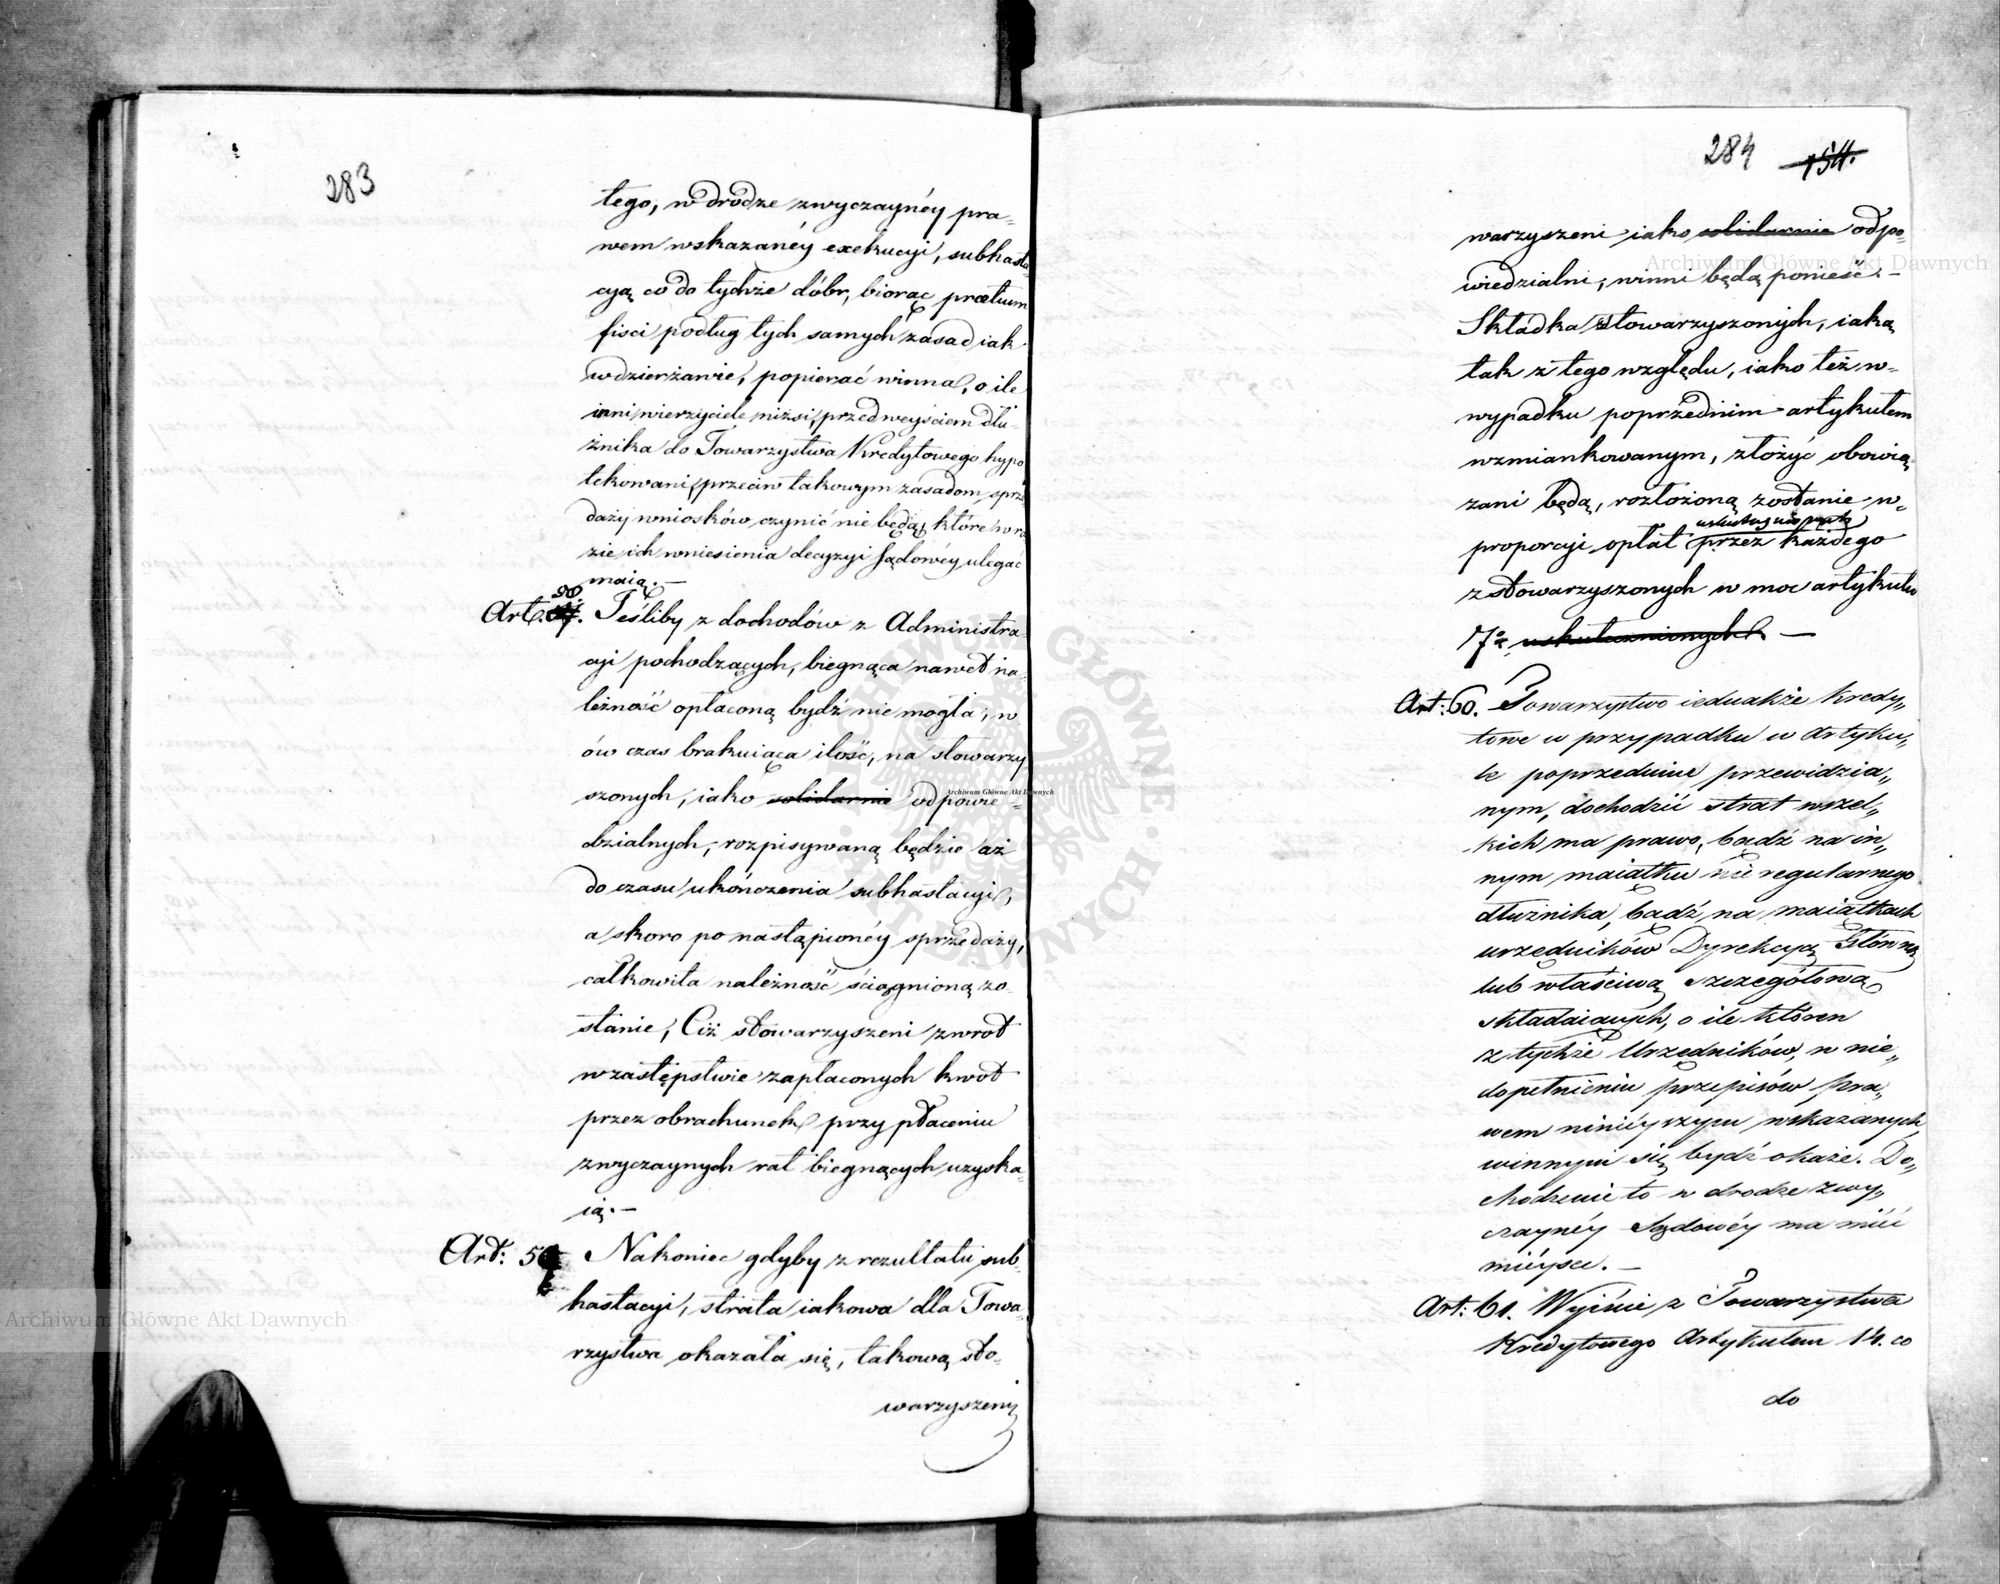 283
tego, w drodze zwyczaynéy pra=
wem wskazanéy exekucyi, subhasta
cyą co do tychże dóbr, biorąc prætium
fisci podług tych samych zasad iak
w dzierżawie, popierać winna, o ile
inni wierzyciele niżsi, przed weyściem dłu-
żnika do Towarzystwa Kredytowego hypo
tekowani, przeciw takowym zasadom sprze
daży wniosków czynić nie będą, które w ra
zie ich wniesienia decyzyi Sądowéy ulegać
maią. —
Art. 58. Jeśliby z dochodów z Administra-
cyi pochodzących, biegnąca nawet na-
leżność opłaconą bydź nie mogła, w
ów czas brakuiąca ilość, na stowarzy
szonych, iako solidarnie odpowie-
dzialnych, rozpisywaną będzie aż
do czasu ukończenia subhastacyi,
a skoro po nastąpionéy sprzedaży,
całkowita należność ściągnioną zo-
stanie, Ciż stowarzyszeni zwrot
w zastępstwie zapłaconych kwot
przez obrachunek przy płaceniu
zwyczaynych rat biegnących uzyska-
ią. —
Art: 59 Nakoniec gdyby z rezultatu sub-
hastacyi, strata iakowa dla Towa-
rzystwa okazała się, takową sto-
warzyszeni
284 154.
warzyszeni iako solidarnie odpo-
wiedzialni, winni będą ponieść. —
Składka Stowarzyszonych, iaką
tak z tego względu, iako też w=
wypadku poprzednim artykułem
wzmiankowanym, złożyć obowią
zani będą, rozłożoną zostanie w=
proporcyi opłat przez każdego
z stowarzyszonych w moc artykułu
7º uskutecznionych —
Art: 60. Towarzystwo iednakże Kredy„
towe w przypadku w Artyku„
le poprzednim przewidzia„
nym, dochodzić strat wszel„
kich ma prawo, bądź na in„
nym maiątku nieregularnego
dłużnika, bądź na maiątkach
urzędników Dyrekcyą Główną
lub właściwą Szczegółową
składaiących, o ile któren
z tychże Urzędników, w nie„
dopełnieniu przepisów pra„
wem ninieyszym wskazanych
winnym się bydź okaże. Do„
chodzenie to w drodze zwy„
czaynéy Sądowéy ma mieć
mieysce. —
Art: 61. Wyiście z Towarzystwa
Kredytowego Artykułem 14. co
do
Archiwum Główne Akt Dawnych
Archiwum Główne Akt Dawnych
Archiwum Główne Akt Dawnych
ARCHIWUM GŁÓWNE · AKT DAWNYCH ·